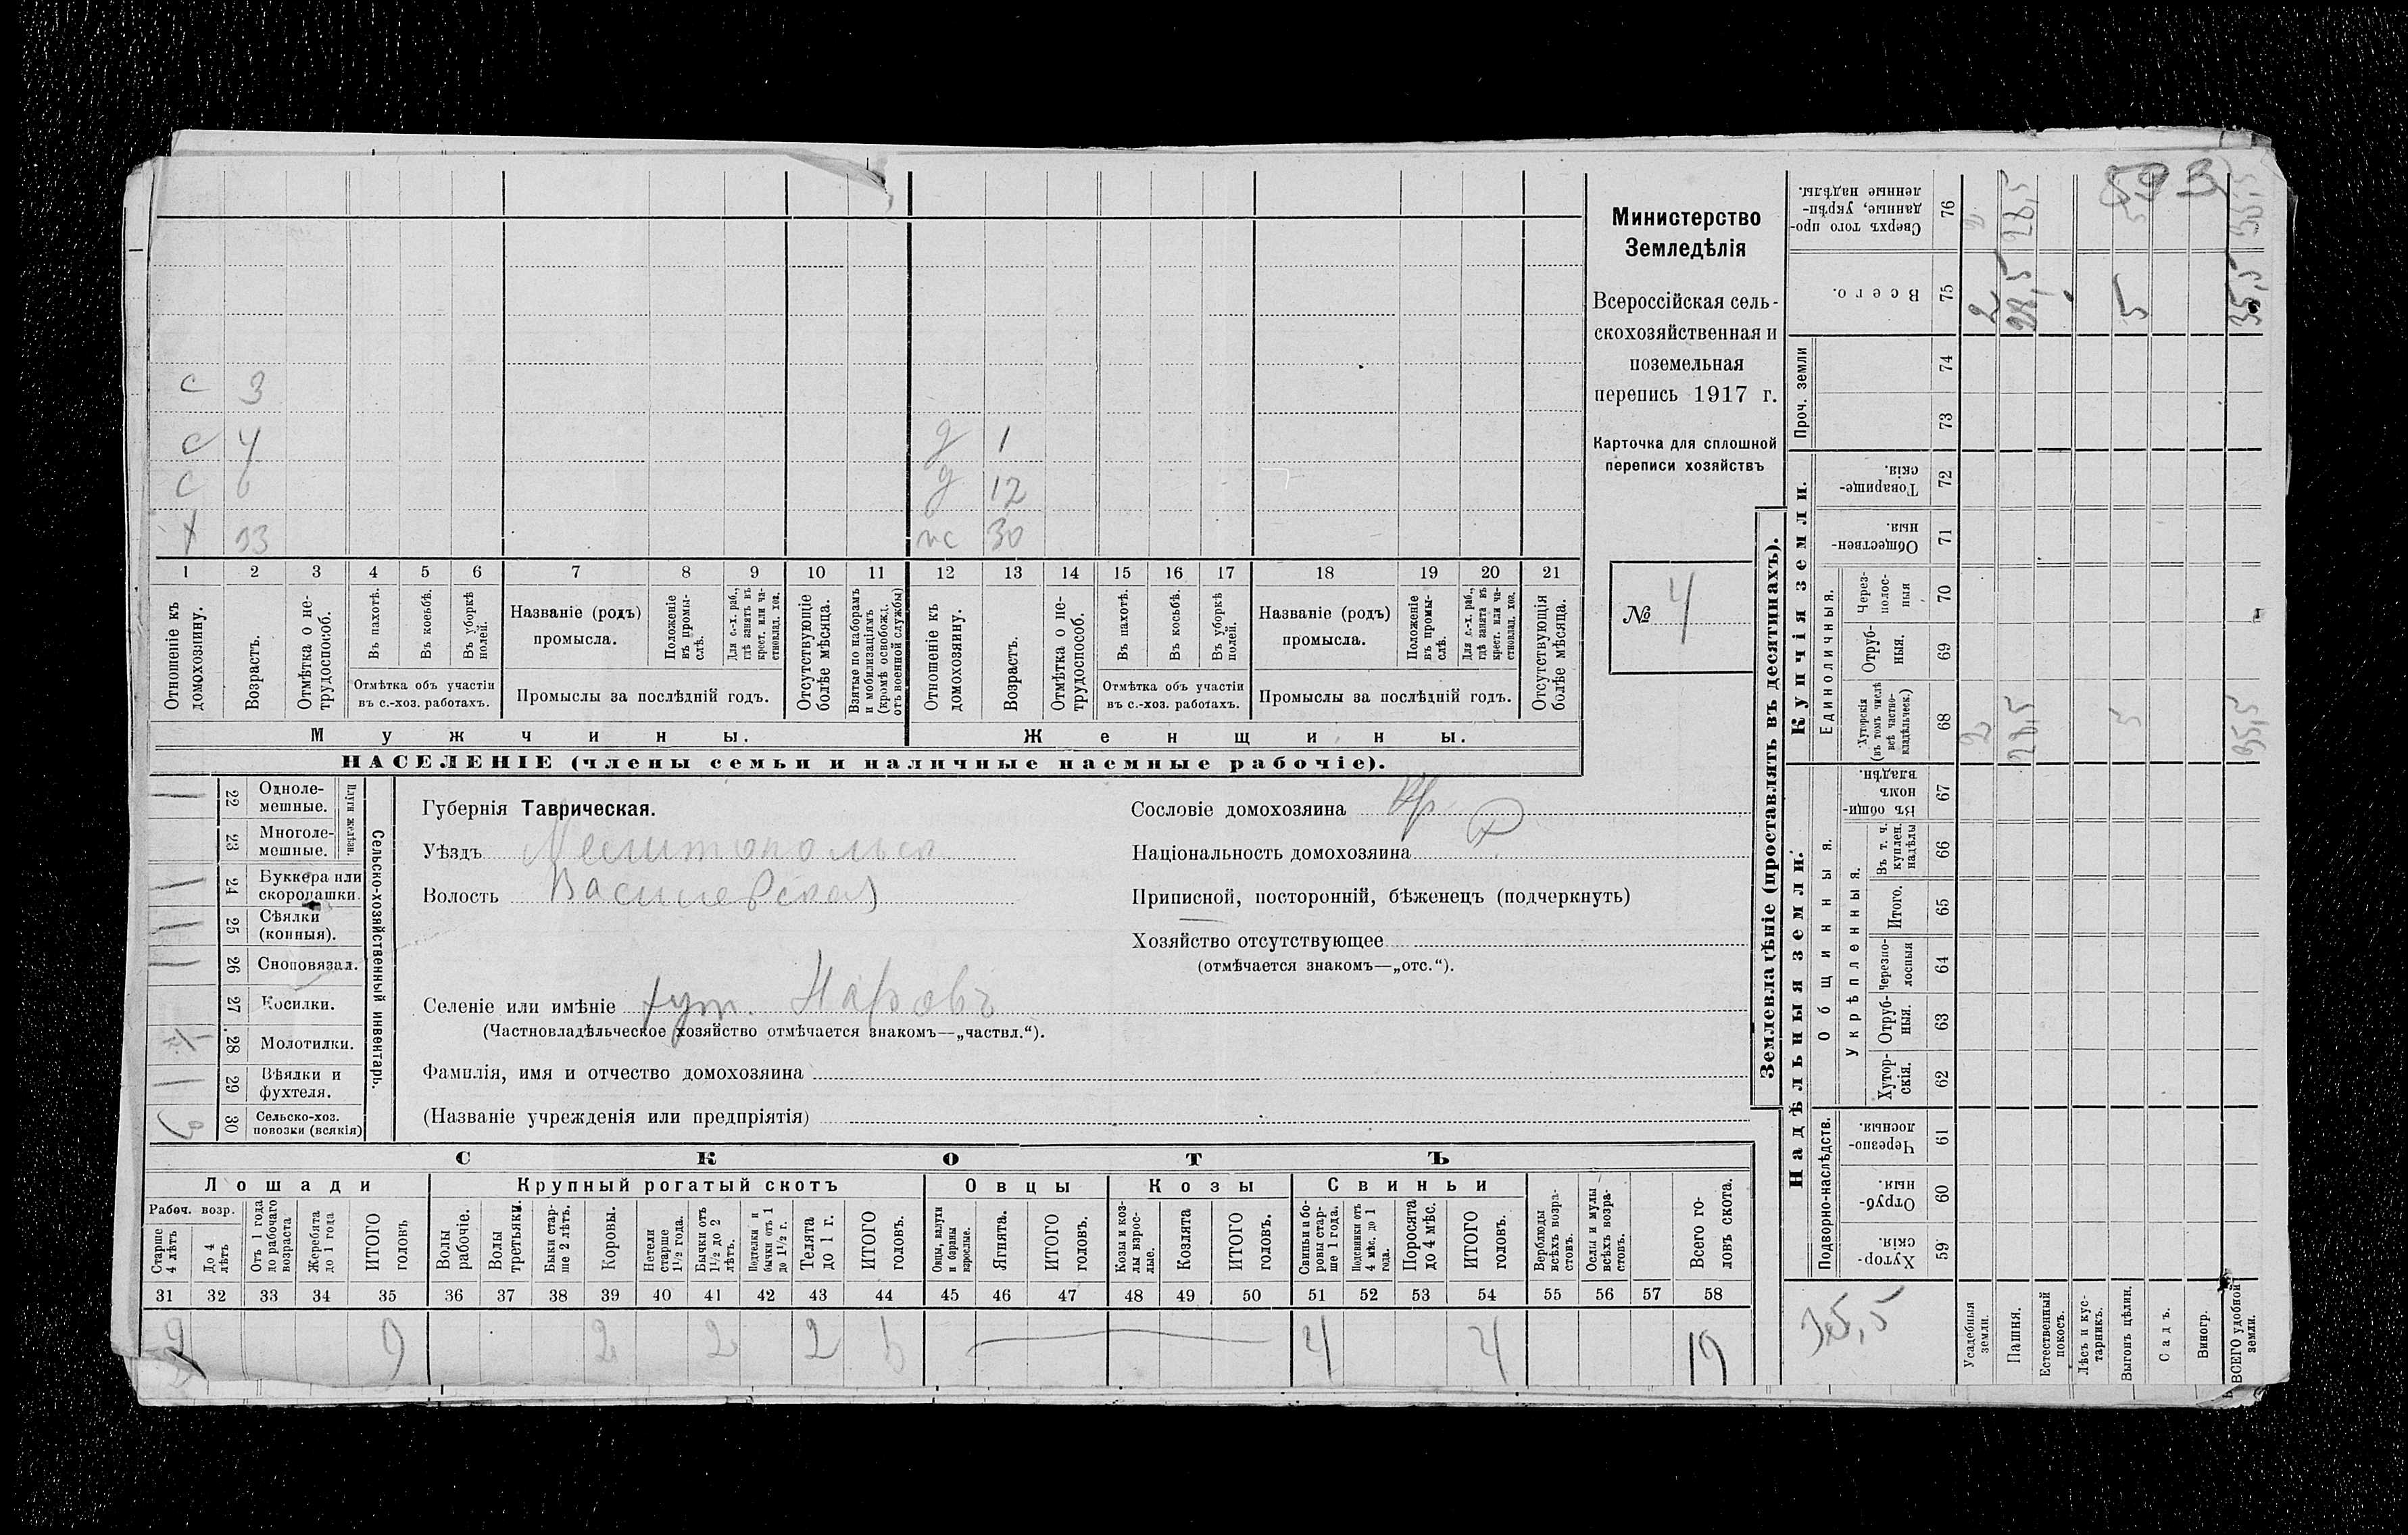 593
с 3
с 4 д 1
с 6 д 12
х 33 жс 30
1 2 3 4 5 6 7 8 9 10 11 12 13 14 15 16 17 18 19 20 21
Отношеніе къ домохозяину.
Возрастъ.
Отмѣтка о не-
трудоспособ.
Въ пахотѣ.
Въ косьбѣ.
Въ уборкѣ
полей.
Отмѣтка объ участіи
въ с.-хоз. работахъ.
Названіе (родъ)
промысла.
Положеніе
въ промы-
слѣ.
Для с.-х. раб.,
гдѣ занятъ въ
крест. или ча-
стновлад. хоз.
Промыслы за послѣдній годъ.
Отсутствующіе
болѣе мѣсяца.
Взятые по наборамъ
и мобилизаціямъ
(кромѣ освобожд.
отъ военной службы)
Отношеніе къ
домохозяину.
Возрастъ.
Отмѣтка о не-
трудоспособ.
Въ пахотѣ.
Въ косьбѣ.
Въ уборкѣ
полей.
Отмѣтка объ участіи
въ с.-хоз. работахъ.
Названіе (родъ)
промысла.
Положеніе
въ промы-
слѣ.
Для с.-х. раб.,
гдѣ занята въ
крест. или ча-
стновлад. хоз.
Промыслы за послѣдній годъ.
Отсутствующія
болѣе мѣсяца.
Мужчины. Женщины.
НАСЕЛЕНІЕ (члены семьи и наличные наемные рабочіе).
Министерство
Земледѣлія
Всероссійская сель-
скохозяйственная и
поземельная
перепись 1917 г.
Карточка для сплошной
переписи хозяйствъ
№ 4
Сельско-хозяйственный инвентарь.
Плуги желѣзн.
22 Одноле-
мешные.
23 Многоле-
мешные.
24 Буккера или
скоропашки.
25 Сѣялки
(конныя).
26 Сноповязал.
27 Косилки.
28 Молотилки.
29 Вѣялки и
фухтеля.
30 Сельско-хоз.
повозки (всякія)
Губернія Таврическая.
Уѣздъ Мелитопольск
Волость Василевская
Селеніе или имѣніе хут.
(Частновладѣльческое хозяйство отмѣчается знакомъ—„частвл.“).
Фамилія, имя и отчество домохозяина
(Названіе учрежденія или предпріятія)
Сословіе домохозяина Кр
Національность домохозяина Р
Приписной, посторонній, бѣженецъ (подчеркнуть)
Хозяйство отсутствующее
(отмѣчается знакомъ—„отс.“).
СКОТЪ
Лошади Крупный рогатый скотъ Овцы Козы Свиньи
Рабоч. возр.
Старше
4 лѣтъ
До 4
лѣтъ
Отъ 1 года
до рабочаго
возраста
Жеребята
до 1 года
ИТОГО
головъ
Волы
рабочіе.
Волы
третьяки.
Быки стар-
ше 2 лѣтъ.
Коровы.
Нетели
старше
1½ года.
Бычки отъ
1½ до 2
лѣтъ.
Подтелки и
бычки отъ 1
до 1½ г.
Телята
до 1 г.
ИТОГО
головъ.
Овцы, валухи
и бараны
взрослые.
Ягнята.
ИТОГО
головъ.
Козы и коз-
лы взрос-
лые.
Козлята
ИТОГО
головъ.
Свиньи и бо-
ровы стар-
ше 1 года.
Подсвинки отъ
4 мѣс. до 1
года.
Поросята
до 4 мѣс.
ИТОГО
головъ.
Верблюды
всѣхъ возра-
стовъ.
Ослы и мулы
всѣхъ возра-
стовъ.
Всего го-
ловъ скота.
31 32 33 34 35 36 37 38 39 40 41 42 43 44 45 46 47 48 49 50 51 52 53 54 55 56 57 58
9 9 2 2 2 6 4 4 19
Землевладѣніе (проставлять въ десятинахъ).
Купчія земли.
Надѣльныя земли.
Сверхъ того про-
данные, укрѣп-
ленные надѣлы.
76
2 28,5 5 35,5
Всего.
75
2 28,5 5 35,5
Проч. земли
74
73
Товарище-
скія.
72
Обществен-
ныя.
71
Единоличныя.
Через-
полос-
ныя
70
Отруб-
ныя.
69
Хуторскія
(въ томъ числѣ
всѣ частно-
владѣльческ.)
68
2 28,5 5 35,5
Общинныя.
Въ общи-
номъ
владѣн.
67
Укрѣпленныя.
Въ т. ч.
куплен.
надѣлы
66
Итого.
65
Черезпо-
лосныя
64
Отруб-
ныя.
63
Хутор-
скія.
62
Подворно-наслѣдств.
Черезпо-
лосныя.
61
Отруб-
ныя.
60
Хутор-
скія.
59
35,5
Усадебныя
земли.
Пашня.
Естественный
покосъ.
Лѣсъ и кус-
тарникъ.
Выгонъ цѣлин.
Садъ.
Виногр.
ВСЕГО удобной
земли.